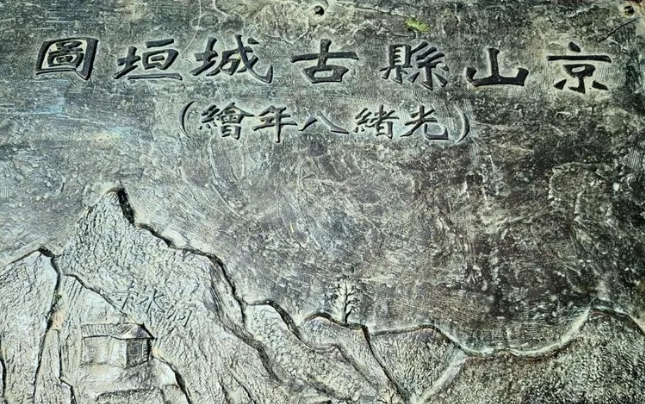 京山縣古城垣圖
(光緒八年繪)